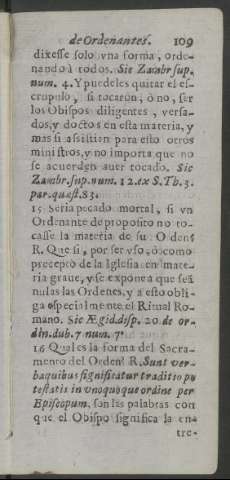 de Ordenantes. 109
dixesse solo vna forma, orde-
nando à todos. Sic Zambr. sup.
num. 4. Y puedeles quitar el es-
crupulo, si tocaron, ò no, ser
los Obispos diligentes, versa-
dos, y doctos en esta materia, y
mas si assistian para esto otros
ministros, y no importa que no
se acuerden auer tocado. Sic
Zambr. sup. num. 12. ex S. Th. 3.
par. quæst. 83.
15 Seria pecado mortal, si vn
Ordenante de proposito no to-
casse la materia de su Orden?
R. Que si, por ser vso, ò como
precepto de la Iglesia en mate-
ria graue, y se expone a que seã
nulas las Ordenes, y a esto obli-
ga especialmente el Ritual Ro-
mano. Sic Ægid. disp. 20. de or-
din. dub. 7. num. 7.
16 Qual es la forma del Sacra-
mento del Orden? R. Sunt ver-
ba quibus significatur traditio po
testatis in vnoquoque ordine per
Episcopum. son las palabras con
que el Obispo significa la en-
tre-